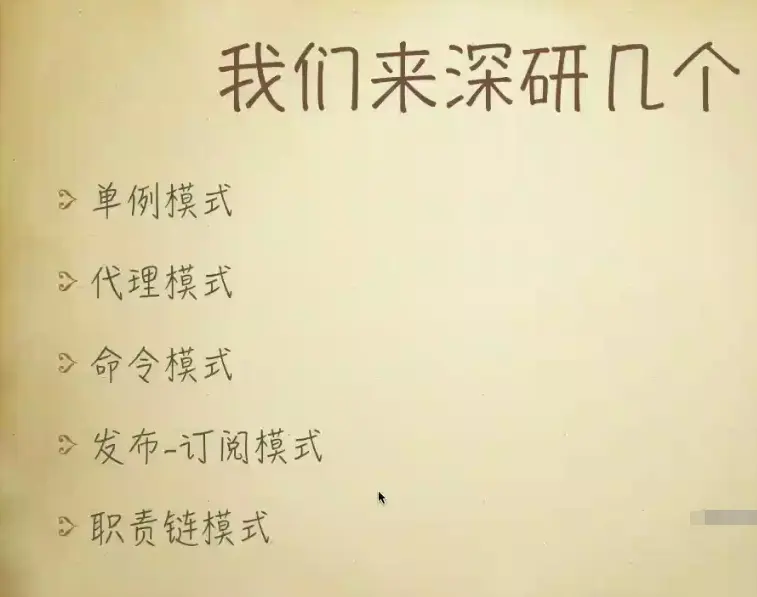 我们来深研几个
单例模式
代理模式
命令模式
发布-订阅模式
职责链模式